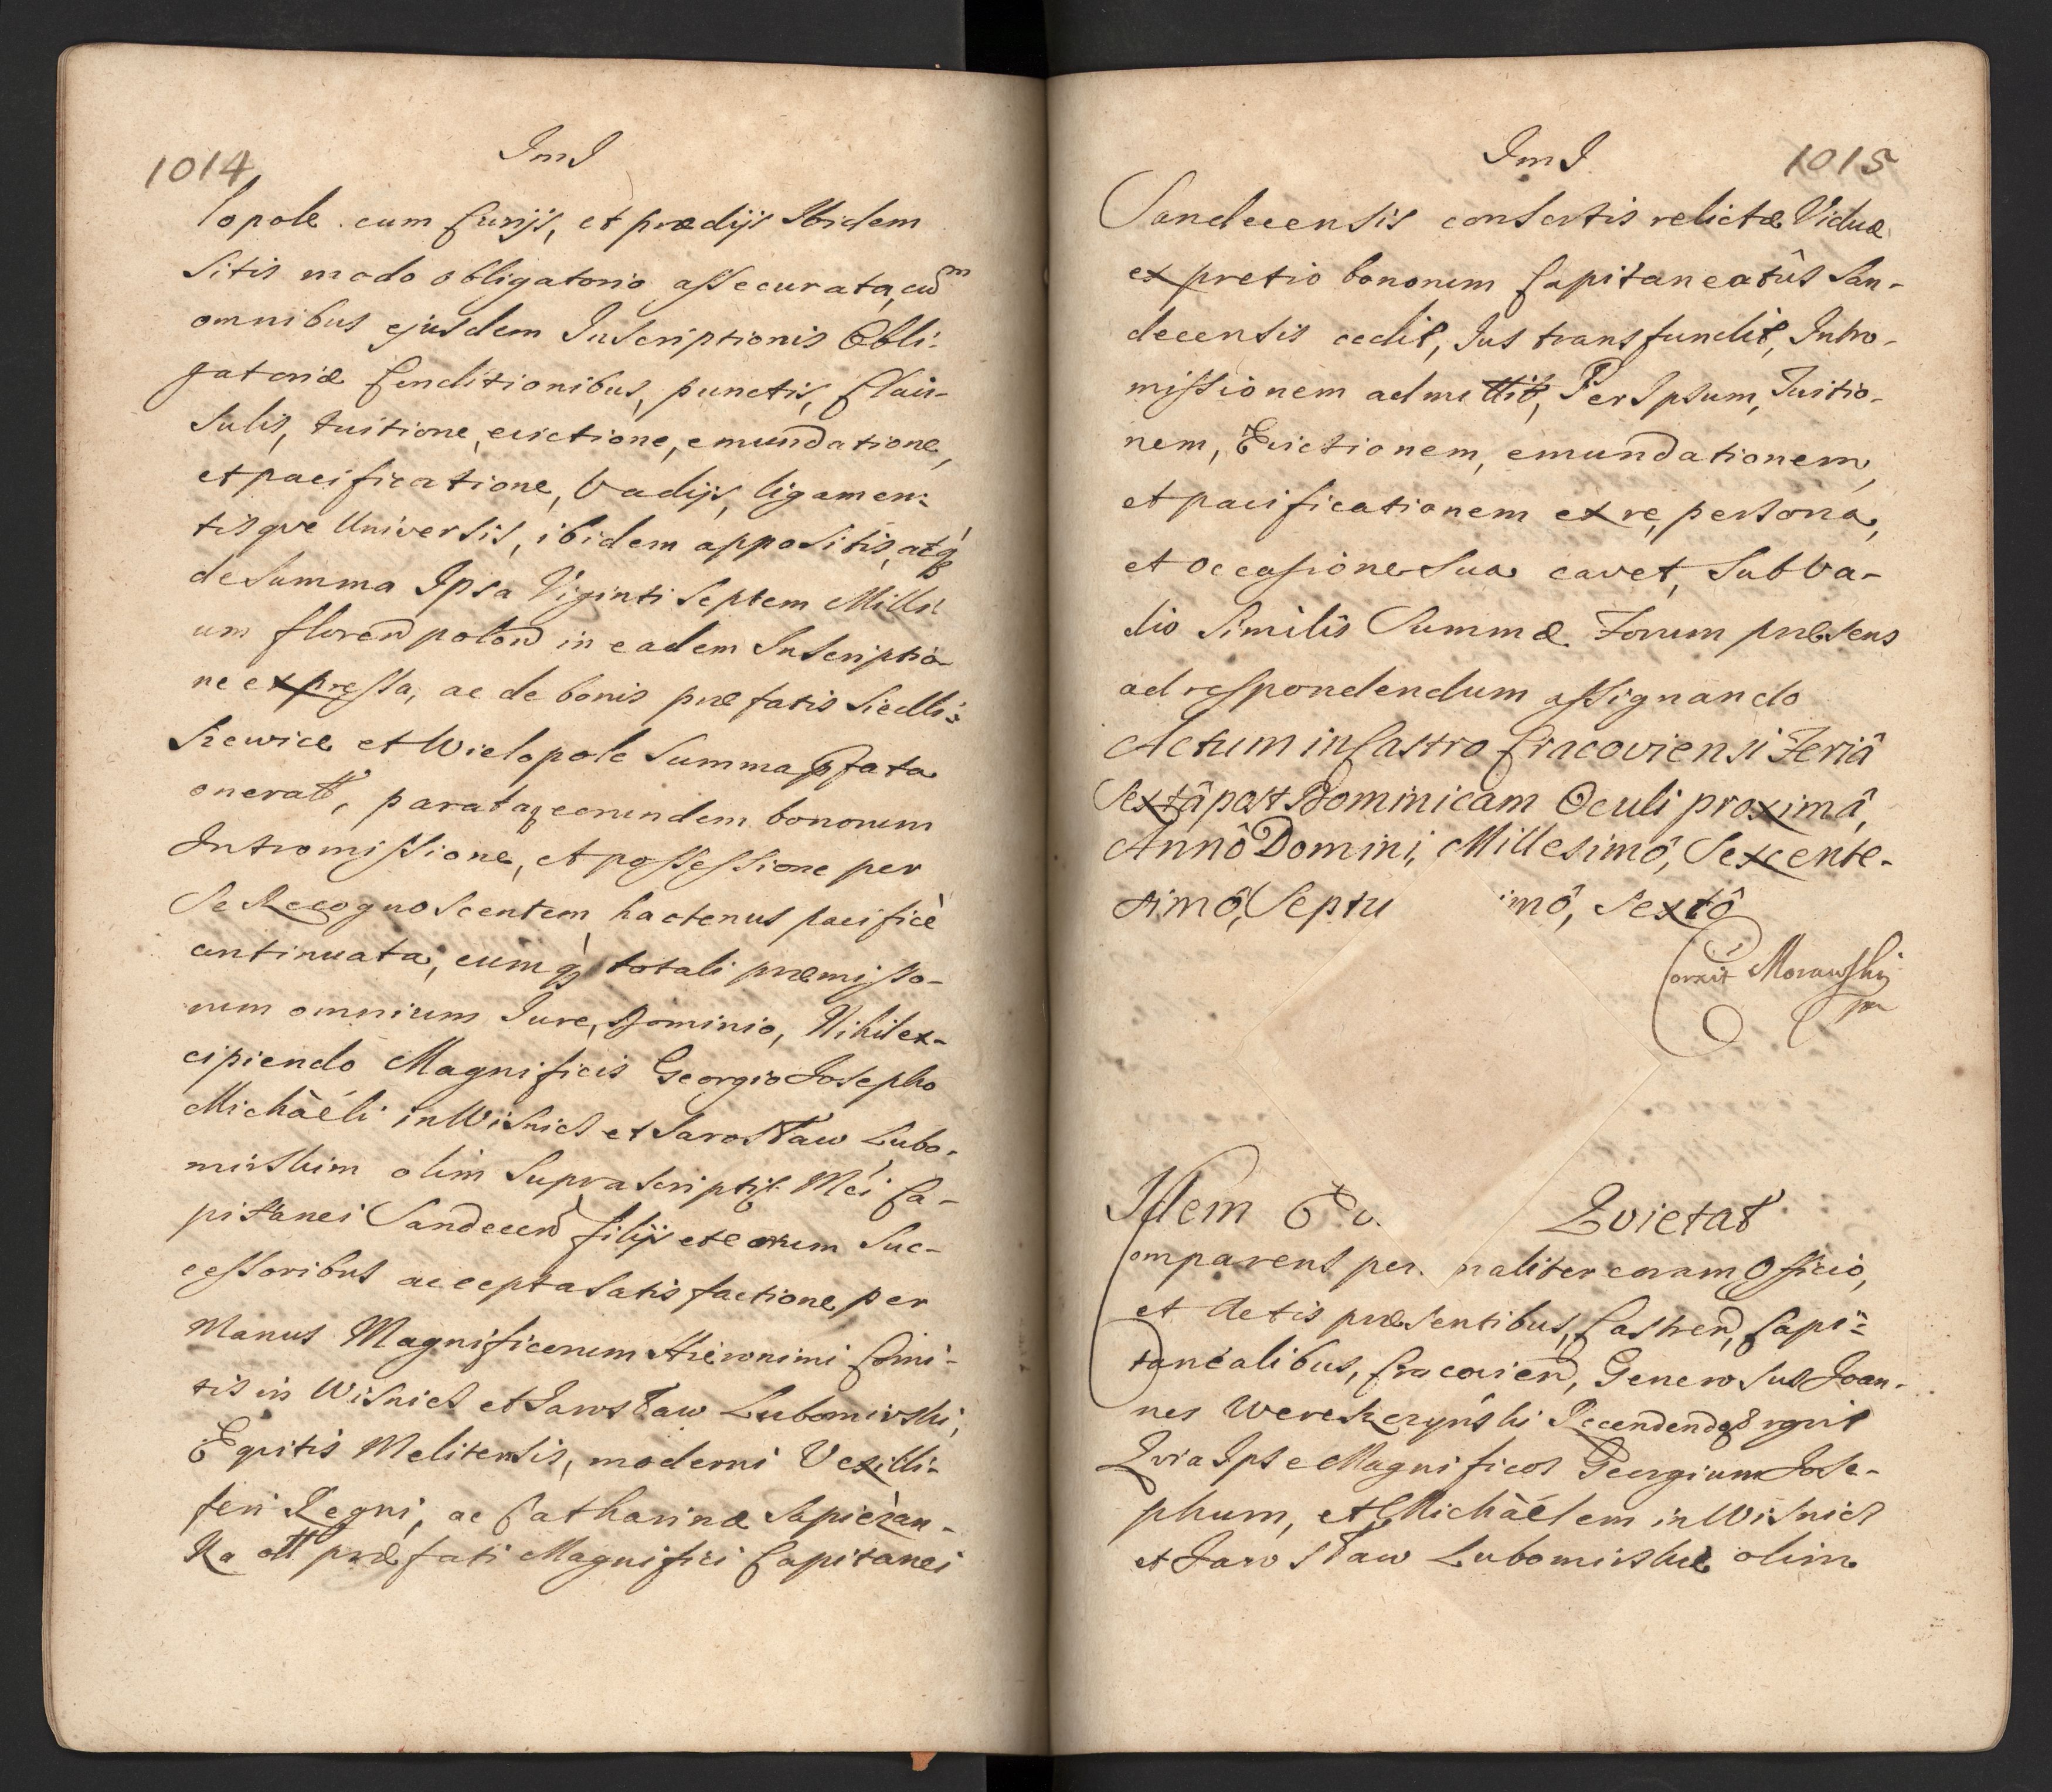 1014
ImJ
lopole cum Curijs, et prædijs Ibidem
Sitis modo obligatorio assecurata, cũ
omnibus ejusdem Inscriptionis Obli-
gatoriæ Conditionibus, punctis, Clau-
sulis, tuitione, evictione, emundatione,
et pacificatione, Vadijs, ligamen-
tisque Universis, ibidem appositis, atq;
de Summa Ipsa Viginti Septem Milli-
um floren polon in eadem Inscriptio-
ne expressa, ac de bonis præfatis Siedli-
szewice et Wielopole Summa pfata
onerat, parataq; eorundem bonorum
Intromissione, et possessione per
Se Recognoscentem hactenus pacificè
continuata, cumq; totali præmisso-
rum omnium Jure, Dominio, Nihil ex-
cipiendo Magnificis Georgio Josepho
Michàéli in Wisnicz et Jarosław Lubo-
mirskim olim Suprascripti Mci Ca-
pitanei Sandecen filijs et eorum Suc-
cessoribus accepta Satisfactione per
Manus Magnificorum Hieronimi Comi-
tis in Wisnicz et Jarosław Lubomirski,
Equitis Melitensis, moderni Vexilli-
feri Regni, ac Catharinæ Sapiežan-
ka olt præfati Magnifici Capitanei
ImJ
1015
Sandecensis consortis relictæ Viduæ
ex pretio bonorum Capitaneatûs San-
decensis cedit, Jus transfundit, Intro-
missionem admittit, Per Ipsum, Tuitio-
nem, Evictionem, emundationem,
et pacificationem ex re, persona,
et occasione Sua cavet, Sub Va-
dio Similis Summæ Forum præsens
ad respondendum assignando
Actum in Castro Cracoviensi Feriâ
Sextâ post Dominicam Oculi proximâ,
Annô Domini, Millesimô, Sexcente-
simô, Septu imô, Sextô
Corexit Morawski
mp
Idem Eo Qvietat
Comparens per naliter coram Officio,
et Actis præsentibus, Castren, Capi-
tanéalibus, Cracovien, Generosus Joan-
nes Wereszczyński
Qvia Ipse Magnificos Georgium Jose-
phum, et Michàélem in Wisnicz
et Jarosław Lubomirskie olim